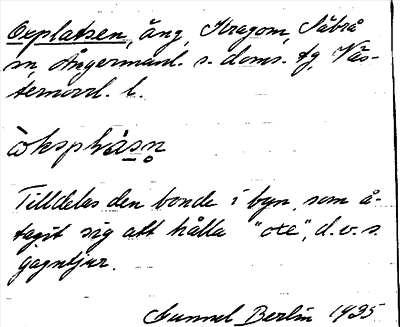 Oxplatsen, äng, Kragom, Säbrå
sn, Ångermanl. s. doms. fg, Väs-
ternorrl. l.
òksplàsn̥
Tilldeles den bonde i byn, som å-
tagit sig att hålla "ote", d.v.s.
gagntjur.
Sunnel Berlin 1935